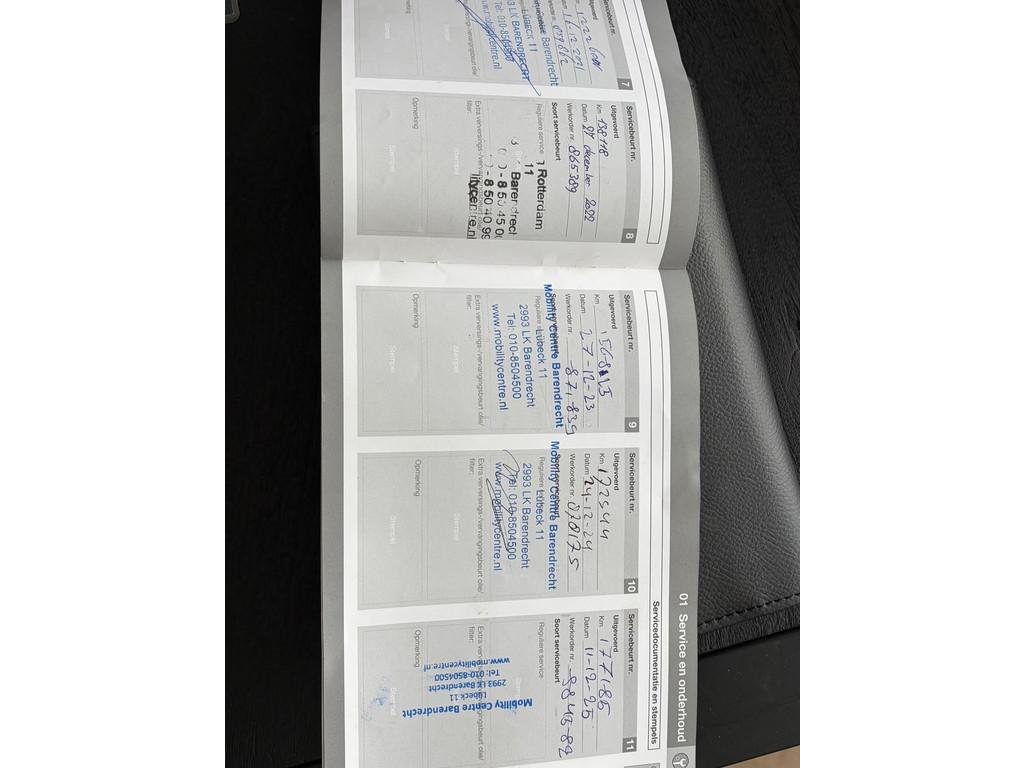 01 Service en onderhoud
Servicedocumentatie en stempels
Servicebeurt nr. 7
16.12.2021
Werkorder nr. 059662
Barendrecht
Lübeck 11
LK BARENDRECHT
Tel: 010-8504500
www.mobilitycentre.nl
Opmerking
Stempel
Servicebeurt nr. 8
Uitgevoerd
Km 138118
Datum 27 december 2022
Werkorder nr. 865389
Soort servicebeurt
Reguliere service
Rotterdam
11
Barendrecht
- 8 50 45 0
- 8 50 40 99
litycentre.nl
Extra verversings-/vervangingsbeurt olie/
filter:
Stempel
Opmerking
Stempel
Servicebeurt nr. 9
Uitgevoerd
Km
Datum 27-12-23
Werkorder nr. 871839
Soort servicebeurt
Mobility Centre Barendrecht
Reguliere service
Lübeck 11
2993 LK Barendrecht
Tel: 010-8504500
www.mobilitycentre.nl
Extra verversings-/vervangingsbeurt olie/
filter:
Stempel
Opmerking
Stempel
Servicebeurt nr. 10
Uitgevoerd
Km 172544
Datum 24-12-24
Werkorder nr. 878175
Mobility Centre Barendrecht
Reguliere service
Lübeck 11
2993 LK Barendrecht
Tel: 010-8504500
www.mobilitycentre.nl
Extra verversings-/vervangingsbeurt olie/
filter:
Stempel
Opmerking
Stempel
Servicebeurt nr. 11
Uitgevoerd
Km 177185
Datum 11-12-25
Werkorder nr.
Soort servicebeurt
Reguliere service
Extra verversings-/vervangingsbeurt olie/
filter:
Mobility Centre Barendrecht
Lübeck 11
2993 LK Barendrecht
Tel: 010-8504500
www.mobilitycentre.nl
Opmerking
Stempel